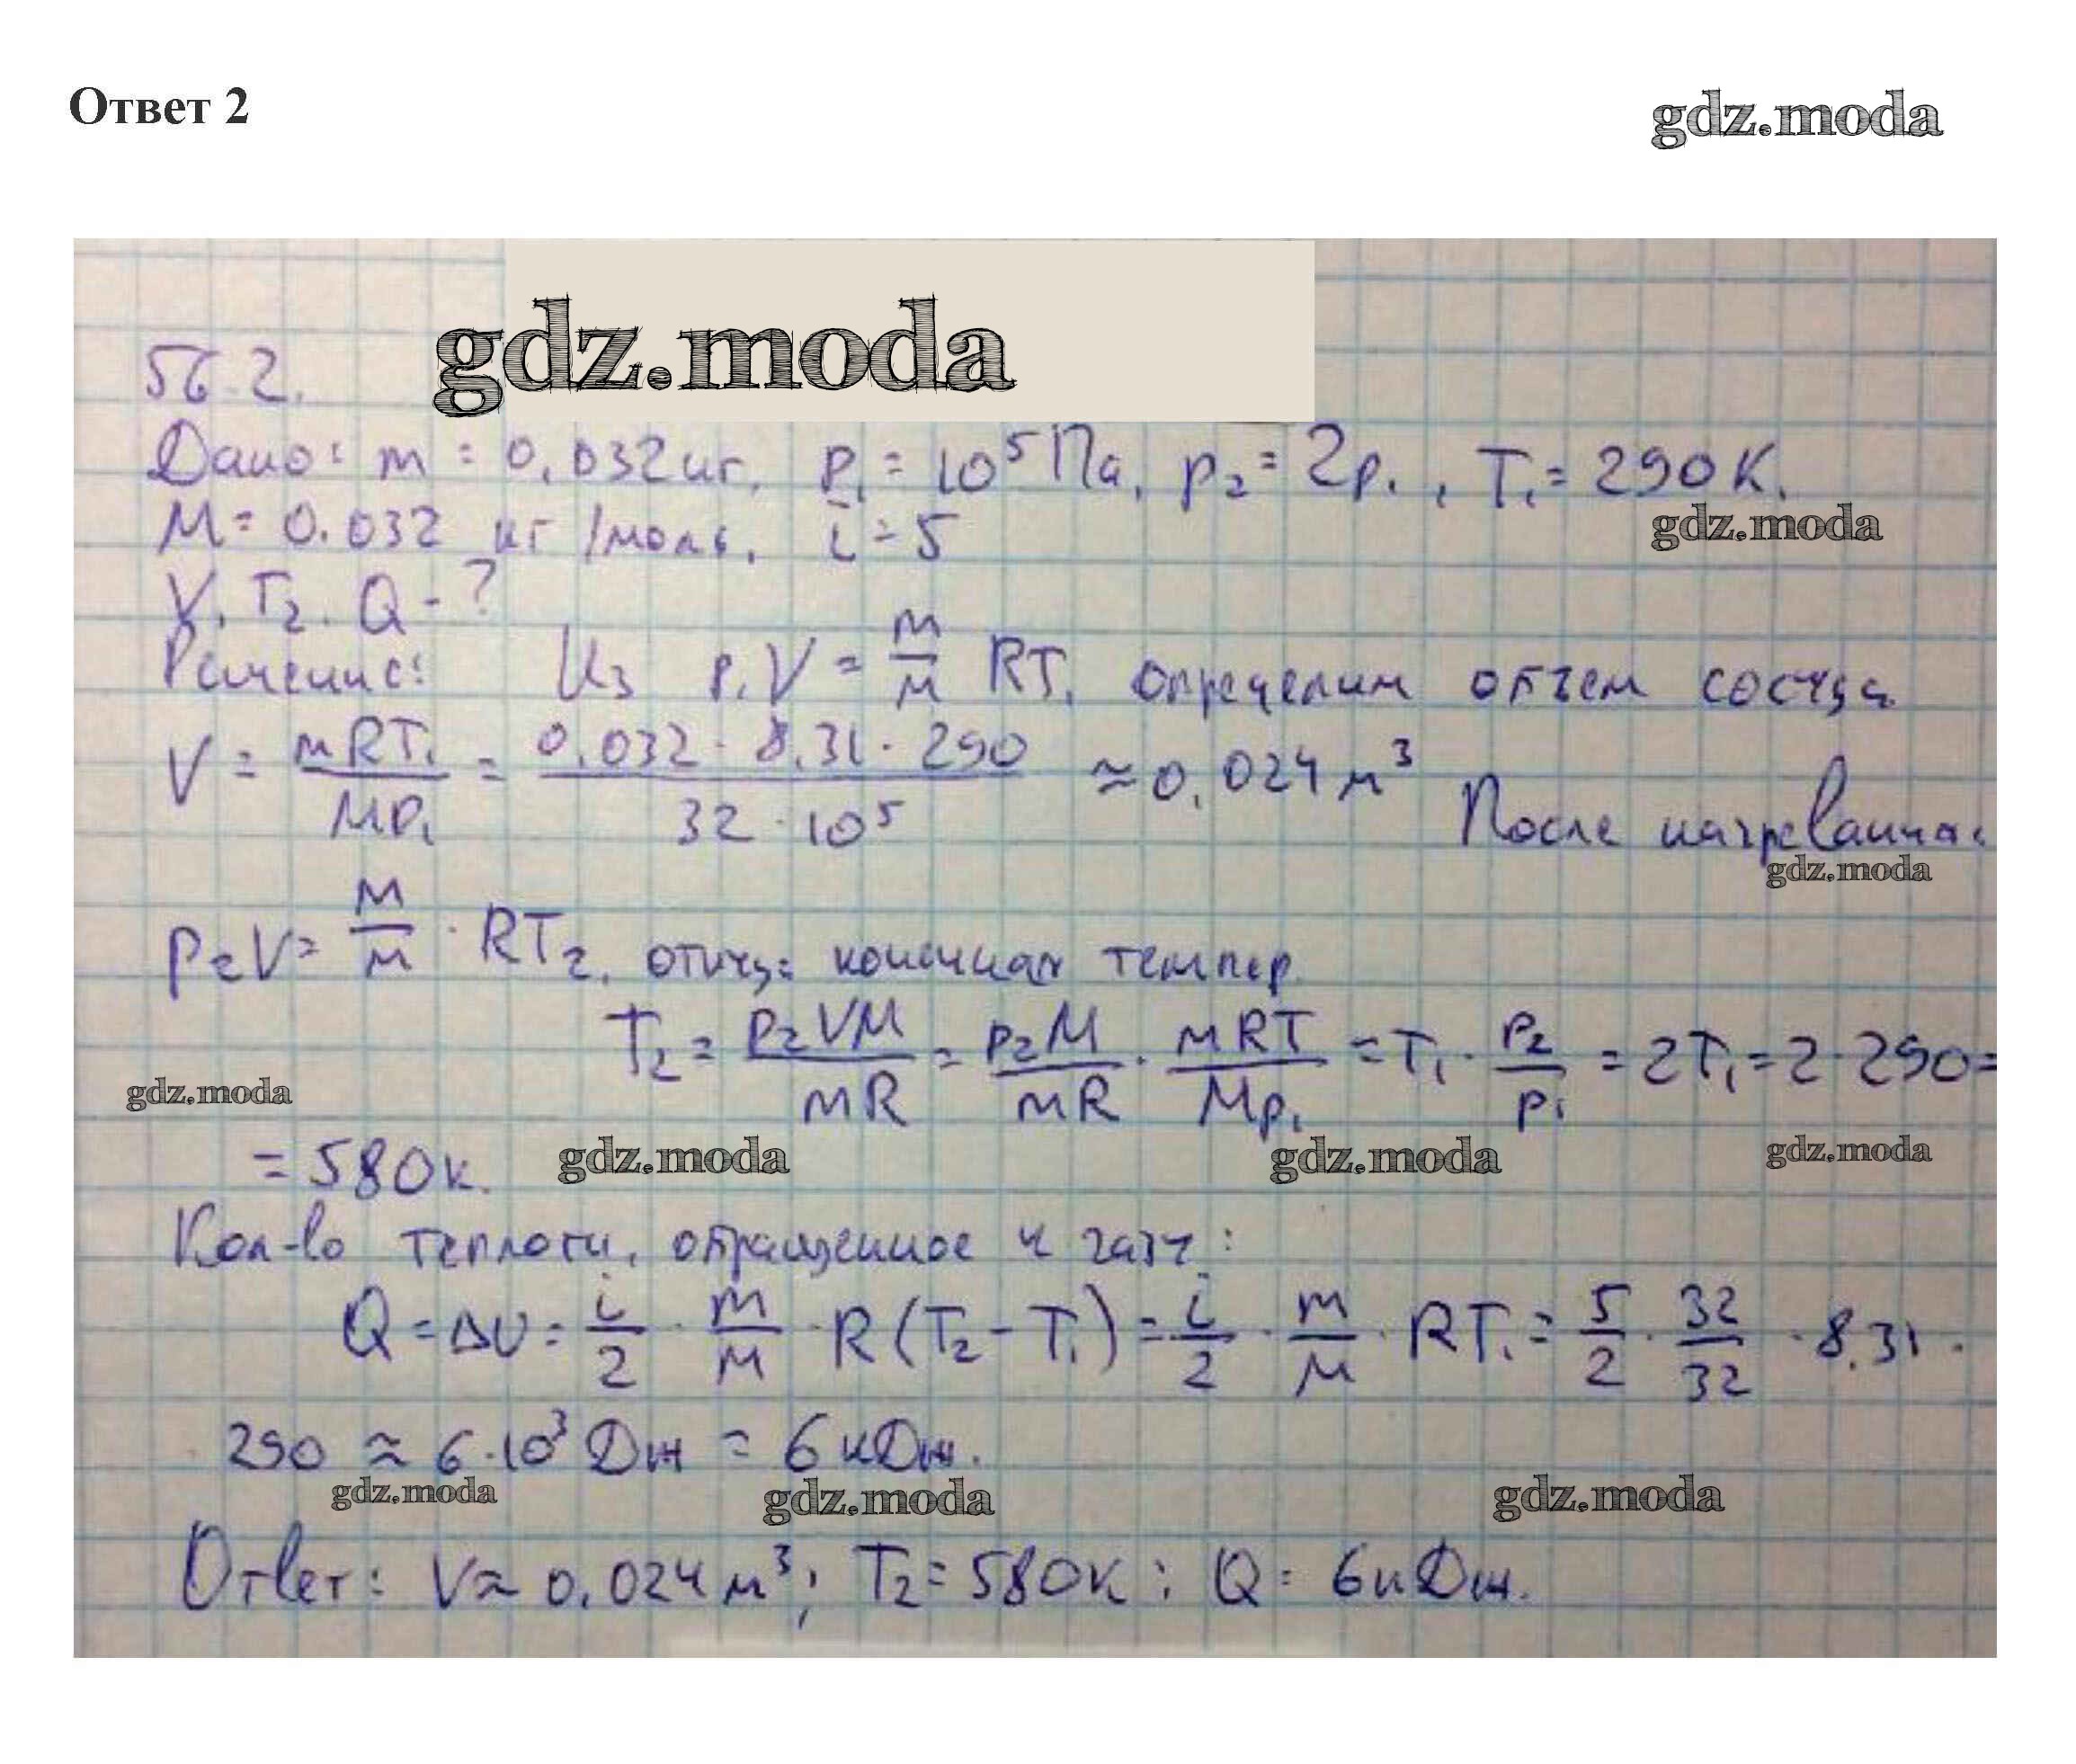 Ответ 2
gdz.moda
gdz.moda
56.2.
Дано: m = 0,032 кг, p₁ = 10⁵ Па, p₂ = 2p₁, T₁ = 290 К.
M = 0.032 кг/моль, i = 5
gdz.moda
V, T₂, Q - ?
Решение: Из p₁V = m/M RT₁ определим объем сосуда
V = mRT₁/Mp₁ = 0,032 · 8,31 · 290 / 32 · 10⁵ ≈ 0,024 м³ После нагревания:
gdz.moda
p₂V = m/M · RT₂, откуда конечная темпер.
T₂ = p₂VM/mR = p₂M/mR · mRT/Mp₁ = T₁ · p₂/p₁ = 2T₁ = 2 · 290 =
gdz.moda
= 580 К.
gdz.moda gdz.moda gdz.moda
Кол-во теплоты, обращенное к газу:
Q = ΔU = i/2 · m/M · R(T₂ - T₁) = i/2 · m/M · RT₁ = 5/2 · 32/32 · 8,31 ·
· 290 ≈ 6 · 10³ Дж = 6 кДж.
gdz.moda gdz.moda gdz.moda
Ответ: V ≈ 0,024 м³; T₂ = 580 К; Q = 6 кДж.